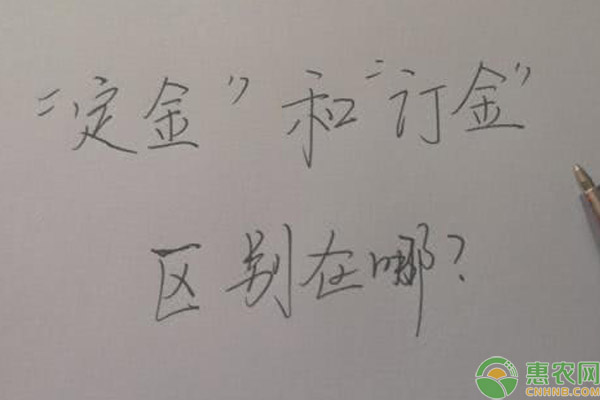 “定金”和“订金”
区别在哪？
惠农网
CNHNB.COM